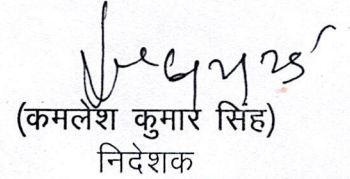 (कमलेश कुमार सिंह)
निदेशक